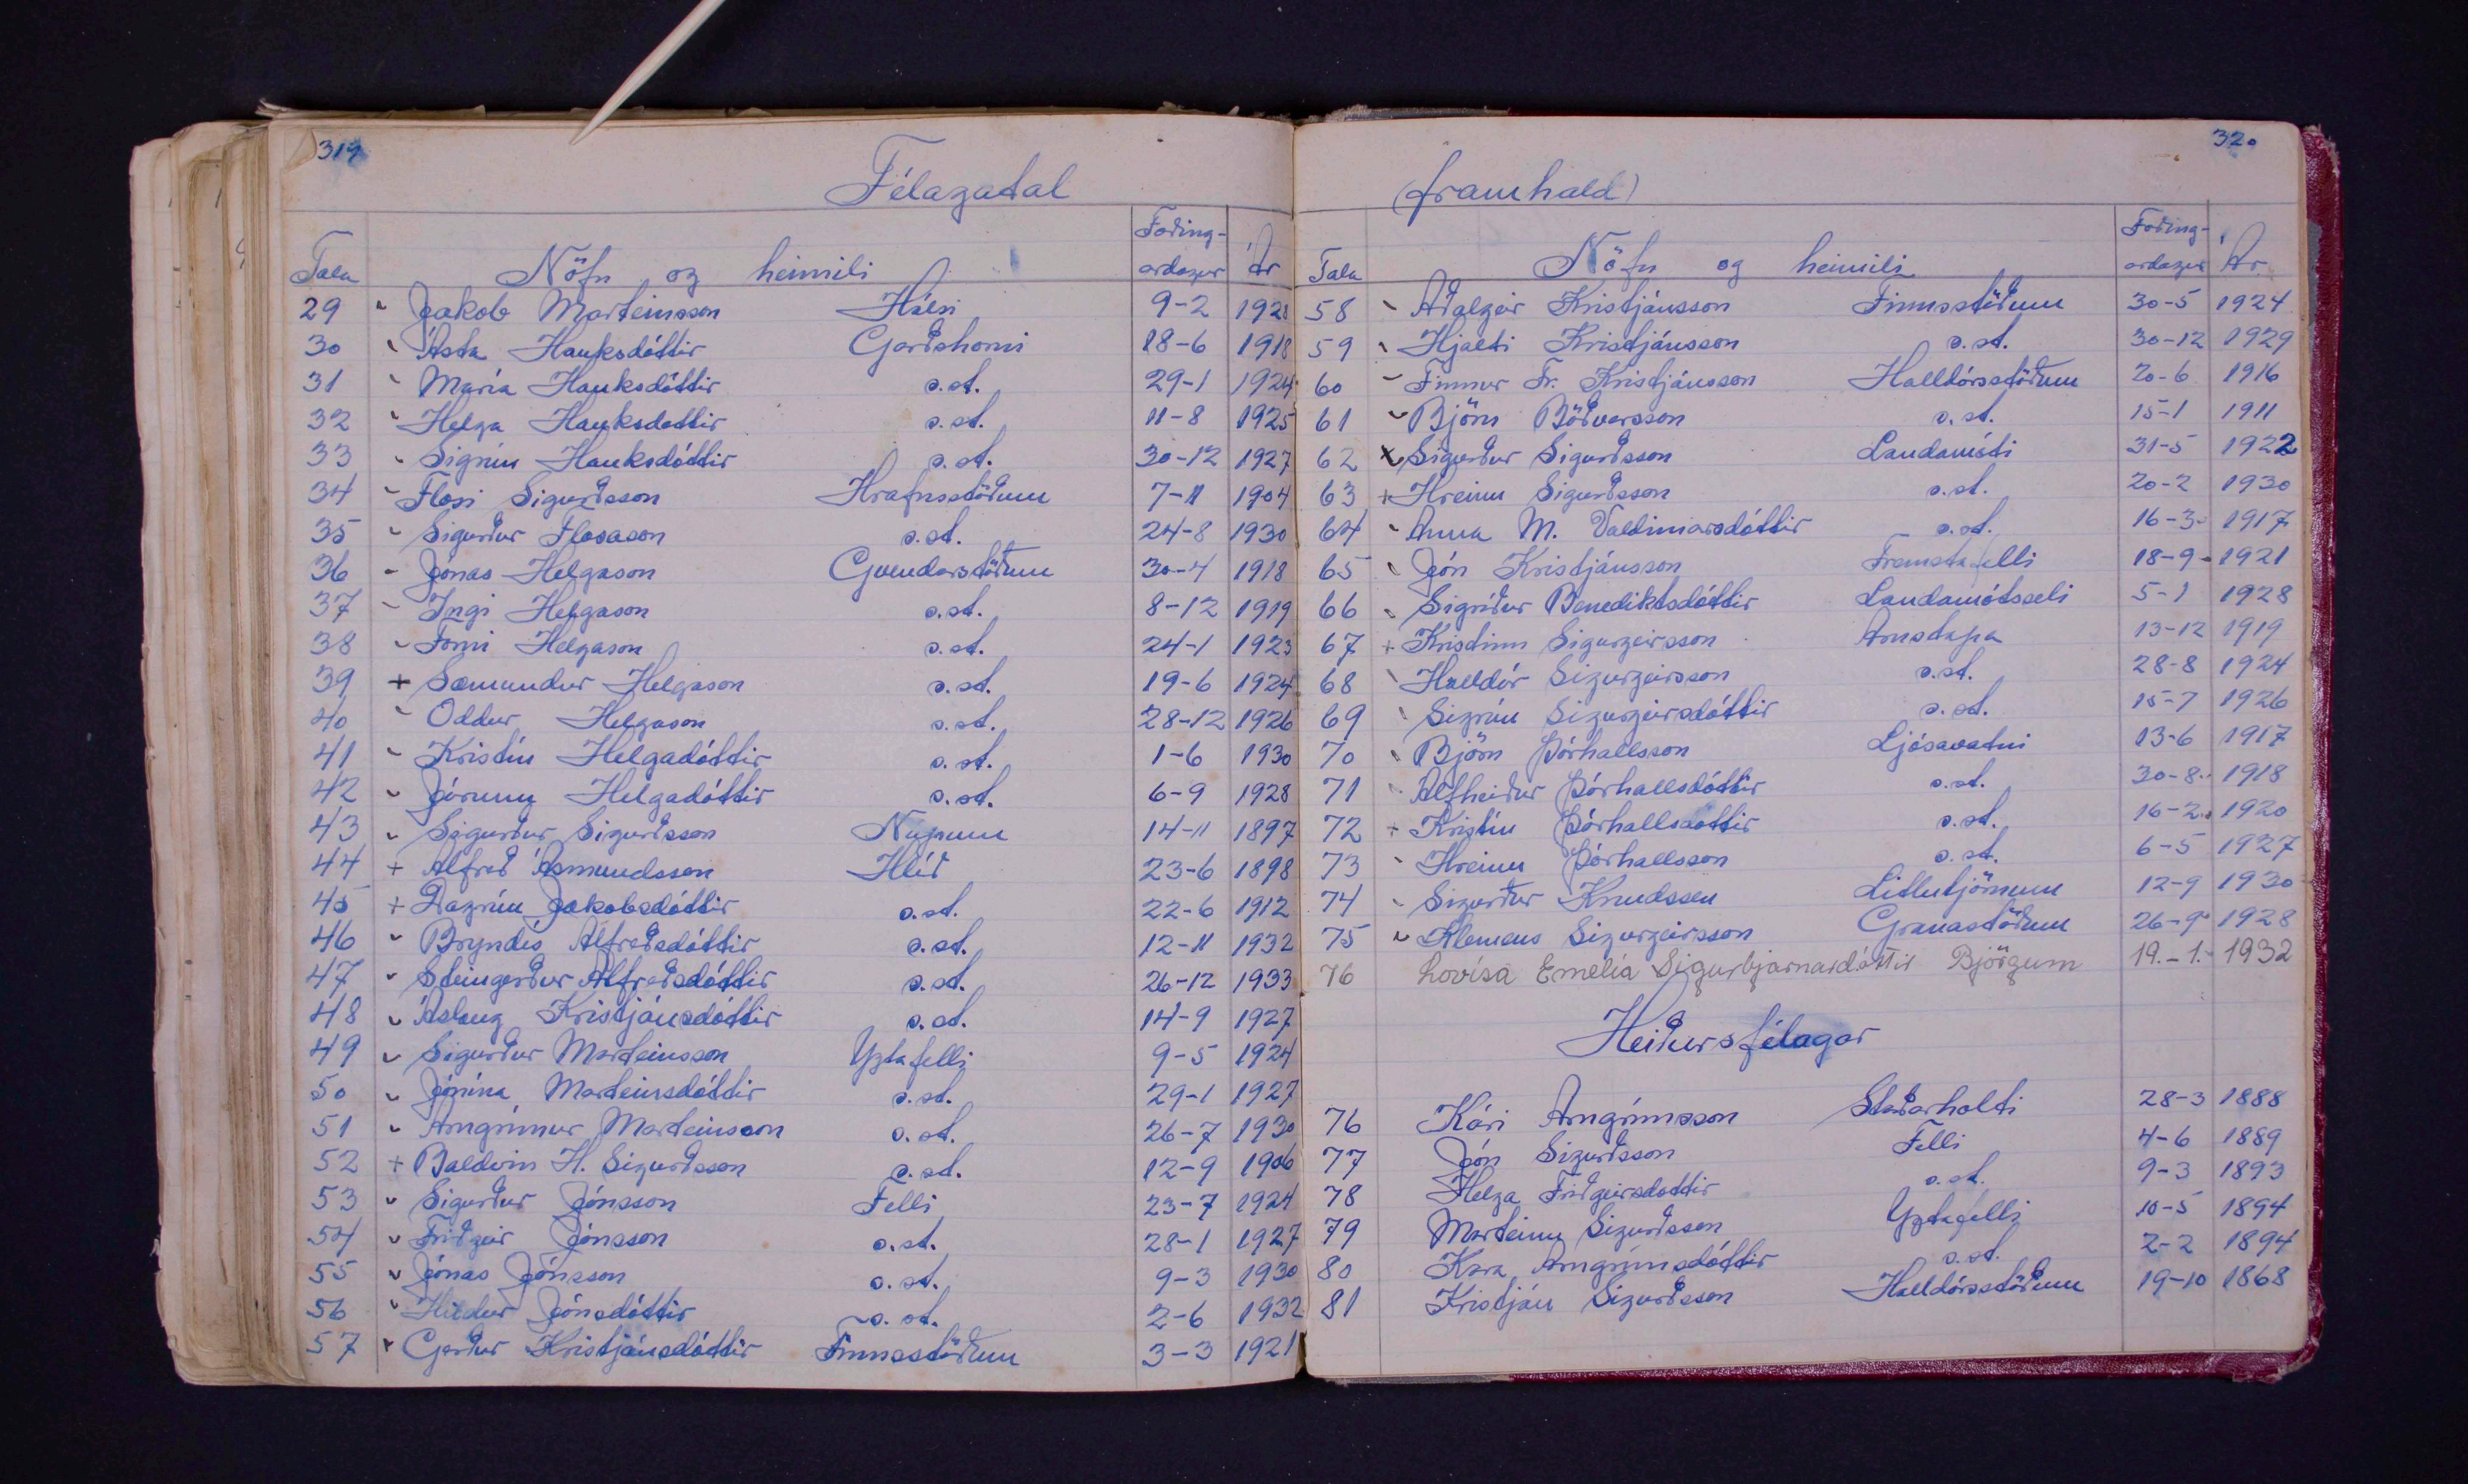 319
Félagatal
Tala Nöfn og heimili Fæðing-ardagur Ár
29 Jakob Marteinsson Hálsi 9-2 1920
30 Ásta Hauksdóttir Garðshorni 18-6 1918
31 María Hauksdóttir s.st. 29-1 1924
32 Helga Hauksdóttir s.st. 11-8 1925
33 Sigrún Hauksdóttir s.st. 30-12 1927
34 Flosi Sigurðsson Hrafnsstöðum 7-11 1904
35 Sigurður Flosason s.st. 24-8 1930
36 Jónas Helgason Gvendarstöðum 30-4 1918
37 Ingi Helgason s.st. 8-12 1919
38 Forni Helgason s.st. 24-1 1923
39 + Sæmundur Helgason s.st. 19-6 1924
40 Oddur Helgason s.st. 28-12 1926
41 Kristín Helgadóttir s.st. 1-6 1930
42 Jórunn Helgadóttir s.st. 6-9 1928
43 Sigurður Sigurðsson Núpum 14-11 1897
44 + Alfreð Ásmundsson Hlíð 23-6 1898
45 + Dagrún Jakobsdóttir s.st. 22-6 1912
46 Bryndís Alfreðsdóttir s.st. 12-11 1932
47 Steingerður Alfreðsdóttir s.st. 26-12 1933
48 Áslaug Kristjánsdóttir s.st. 14-9 1927
49 Sigurður Marteinsson Yztafelli 9-5 1924
50 Jónína Marteinsdóttir s.st. 29-1 1927
51 Arngrímur Marteinsson s.st. 26-7 1930
52 + Baldvin H. Sigurðsson s.st. 12-9 1906
53 Sigurður Jónsson Felli 23-7 1924
54 Friðgeir Jónsson s.st. 28-1 1927
55 Jónas Jónsson s.st. 9-3 1930
56 Hildur Jónsdóttir s.st. 2-6 1932
57 Gerður Kristjánsdóttir Finnsstöðum 3-3 1921
320
(framhald)
Tala Nöfn og heimili Fæðing-ardagur Ár
58 Aðalgeir Kristjánsson Finnsstöðum 30-5 1924
59 Hjalti Kristjánsson s.st. 30-12 1929
60 Finnur Fr. Kristjánsson Halldórsstöðum 20-6 1916
61 Björn Böðvarsson s.st. 15-1 1911
62 x Sigurður Sigurðsson Landamóti 31-5 1922
63 + Hreinn Sigurðsson s.st. 20-2 1930
64 Anna M. Valdimarsdóttir s.st. 16-3 1917
65 Jón Kristjánsson Fremstafelli 18-9 1921
66 Sigríður Benediktsdóttir Landamótsseli 5-1 1928
67 + Kristinn Sigurgeirsson Arnstapa 13-12 1919
68 Halldór Sigurgeirsson s.st. 28-8 1924
69 Sigrún Sigurgeirsdóttir s.st. 15-7 1926
70 Björn Þórhallsson Ljósavatni 13-6 1917
71 Álfheiður Þórhallsdóttir s.st. 30-8 1918
72 + Kristín Þórhallsdóttir s.st. 16-2 1920
73 Hreinn Þórhallsson s.st. 6-5 1927
74 Sigurður Knudssen Litlutjörnum 12-9 1930
75 Klemens Sigurgeirsson Granastöðum 26-9 1928
76 Lovísa Emelía Sigurbjarnardóttir Björgum 19.-1.- 1932
Heiðursfélagar
76 Kári Arngrímsson Staðarholti 28-3 1888
77 Jón Sigurðsson Felli 4-6 1889
78 Helga Friðgeirsdóttir s.st. 9-3 1893
79 Marteinn Sigurðsson Yztafelli 10-5 1894
80 Kara Arngrímsdóttir s.st. 2-2 1894
81 Kristján Sigurðsson Halldórsstöðum 19-10 1868